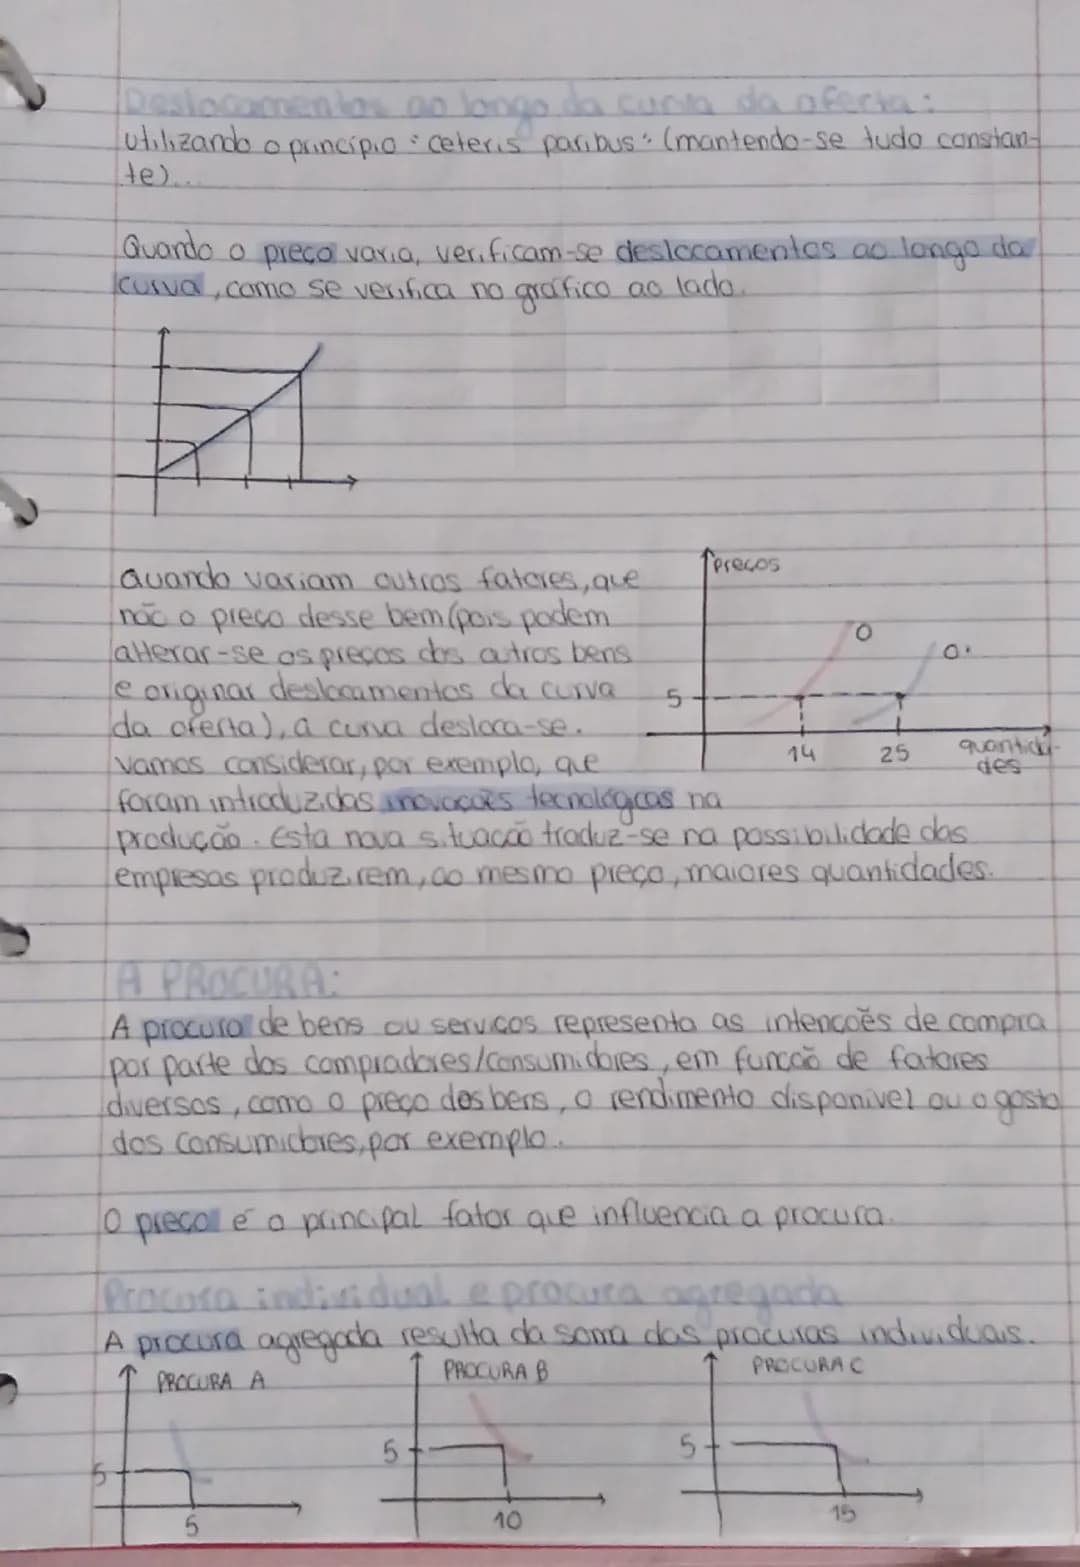 Deslocamentos ao longo da curva da oferta:
utilizando o princípio "ceteris paribus" (mantendo-se tudo constan-
te)...
Quando o preço varia, verificam-se deslocamentos ao longo da
curva, como se verifica no gráfico ao lado.
Quando variam outros fatores, que
não o preço desse bem (pois podem
alterar-se os preços dos outros bens
e originar deslocamentos da curva
da oferta), a curva desloca-se.
vamos considerar, por exemplo, que
foram introduzidas inovações tecnológicas na
produção. Esta nova situação traduz-se na possibilidade das
empresas produzirem, ao mesmo preço, maiores quantidades.
preços
O
O'
5
14
25
quantida-
des
A PROCURA:
A procura de bens ou serviços representa as intenções de compra
por parte dos compradores/consumidores, em função de fatores
diversos, como o preço dos bens, o rendimento disponível ou o gosto
dos consumidores, por exemplo.
O preço é o principal fator que influencia a procura.
Procura individual e procura agregada
A procura agregada resulta da soma das procuras individuais.
PROCURA A
5
5
PROCURA B
5
10
PROCURA C
5
15